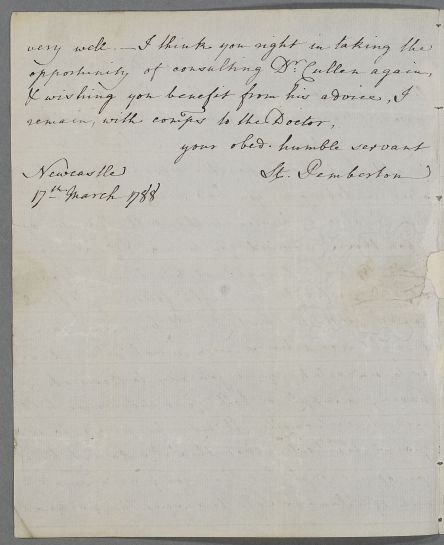 very well. — I think you right in taking the
opportunity of consulting Dr. Cullen again,
& wishing you benefit from his advice, I
remain, with comps to the Doctor,
your obed. humble servant
St. Pemberton
Newcastle
17th March 1788